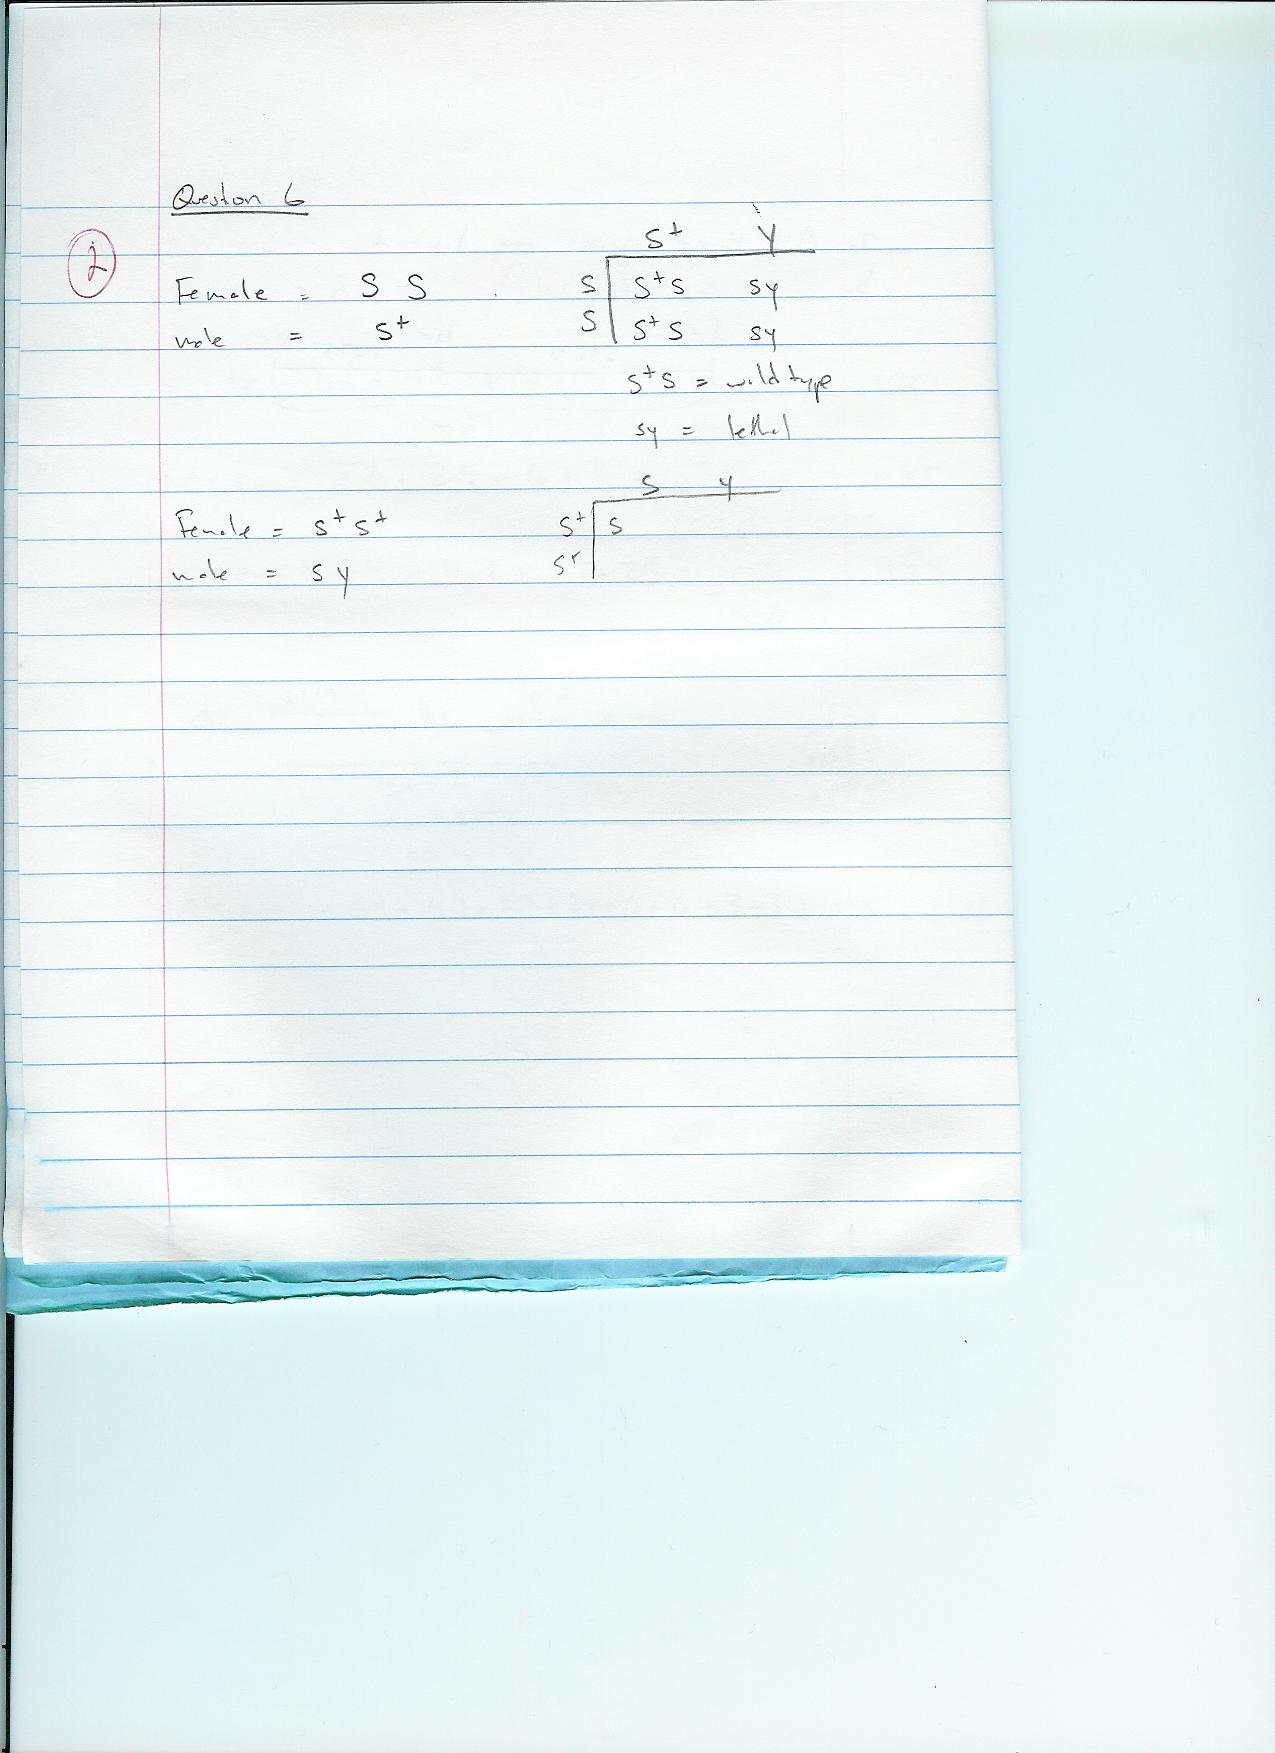 Question 6
2
S+ Y
Female = S S S S+S SY
male = S+ S S+S SY
S+S = wild type
SY = lethal
S Y
Female = S+ S+ S+ S
male = S Y S+